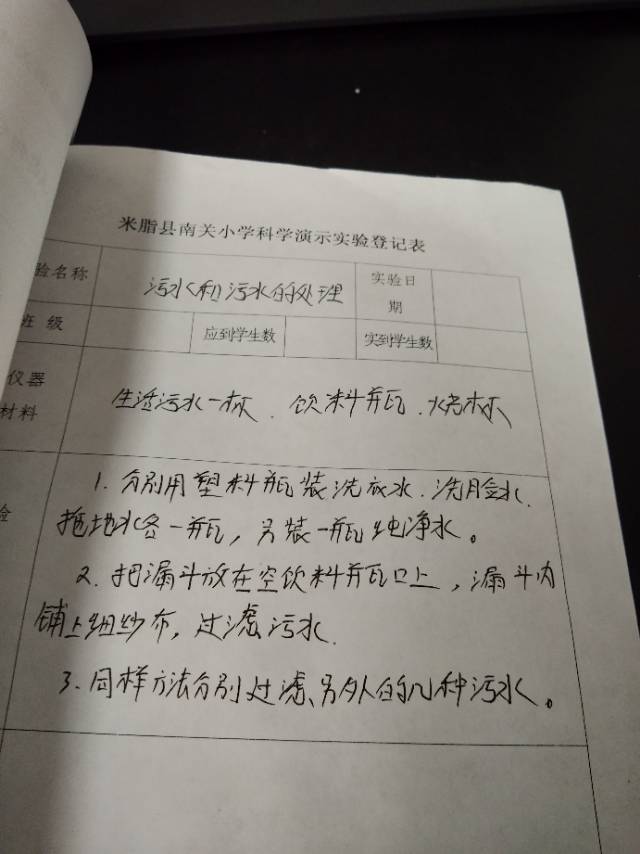 米脂县南关小学科学演示实验登记表
验名称 污水和污水的处理 实验日期
班 级 应到学生数 实到学生数
仪器材料 生活污水一杯、饮料瓶、烧杯
验
1. 分别用塑料瓶装洗衣水、洗脸水、
拖地水各一瓶，另装一瓶纯净水。
2. 把漏斗放在空饮料瓶口上，漏斗内
铺上细纱布，过滤污水.
3. 同样方法分别过滤另外的几种污水。